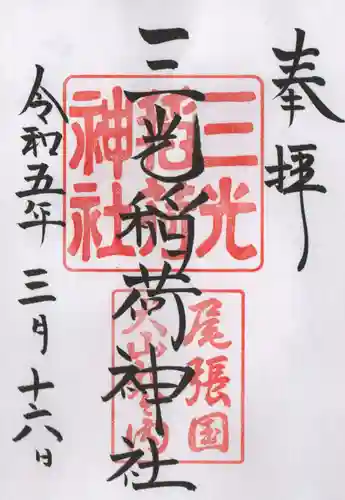 奉拝
三光稲荷神社
令和五年 三月 十六日
三光
稲荷
神社
尾張国
犬山